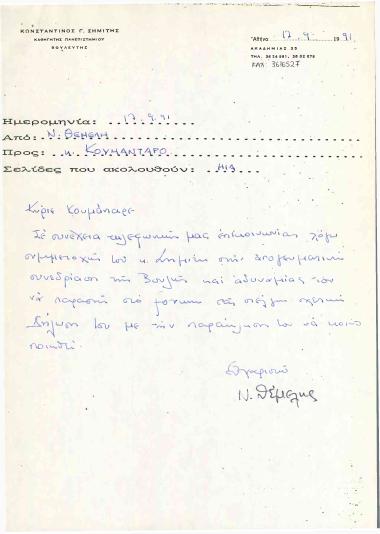 ΚΩΝΣΤΑΝΤΙΝΟΣ Γ. ΣΗΜΙΤΗΣ
ΚΑΘΗΓΗΤΗΣ ΠΑΝΕΠΙΣΤΗΜΙΟΥ
ΒΟΥΛΕΥΤΗΣ
Αθήνα 17 9 1991
ΑΚΑΔΗΜΙΑΣ 35
FAX: 3616527
Ημερομηνία: 17.9.91
Από: Ν. ΘΕΜΕΛΗ
Προς: κ. ΚΟΥΜΑΝΤΑΡΟ
Σελίδες που ακολουθούν: ΜΙΑ
Κύριε Κουμάνταρε
Σε συνέχεια τηλεφωνικής μας επικοινωνίας λόγω
συμμετοχής του κ. Σημίτη στην απογευματινή
συνεδρίαση της Βουλής και αδυναμίας του
να παραστή στο σας στέλνω σχετική
Δήλωση του με την παράκληση του να κοινο-
ποιηθεί.
Ευχαριστώ
Ν. Θέμελης